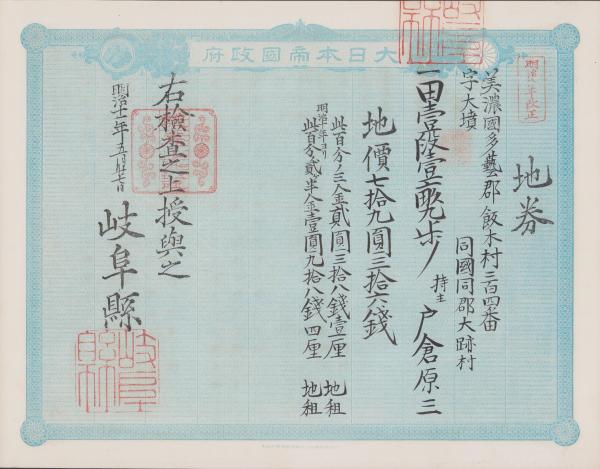 大日本帝國政府
地券
美濃國多藝郡飯木村三百四番
字大墳
同國同郡大跡村
持主 戸倉原三
一田壹段壹畝九歩
地價七拾九圓三拾六錢
此百分ノ三金貳圓三拾八錢壹厘 地租
明治十年ヨリ
此百分貳半金壹圓九拾八錢四厘 地租
右檢査之上授與之
明治十一年五月廿七日
岐阜縣